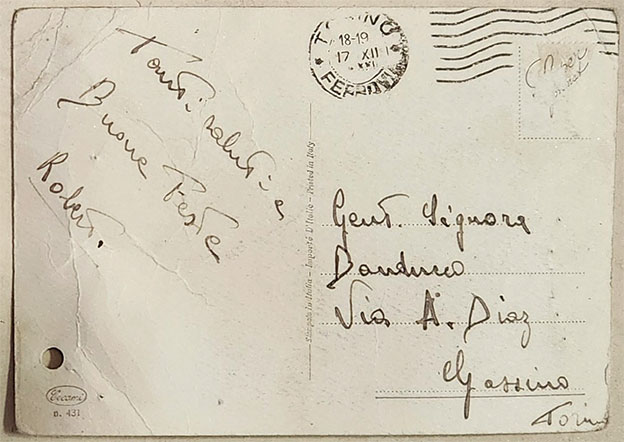 Tanti saluti e
Buone Feste
Robert.
TORINO
18-19
17 XII
XXI
FERROVIA
Stampato in Italia - Importé D'Italie - Printed in Italy
Gent. Signora
Via A. Diaz
Gassino
Torino
Cecami
n. 431